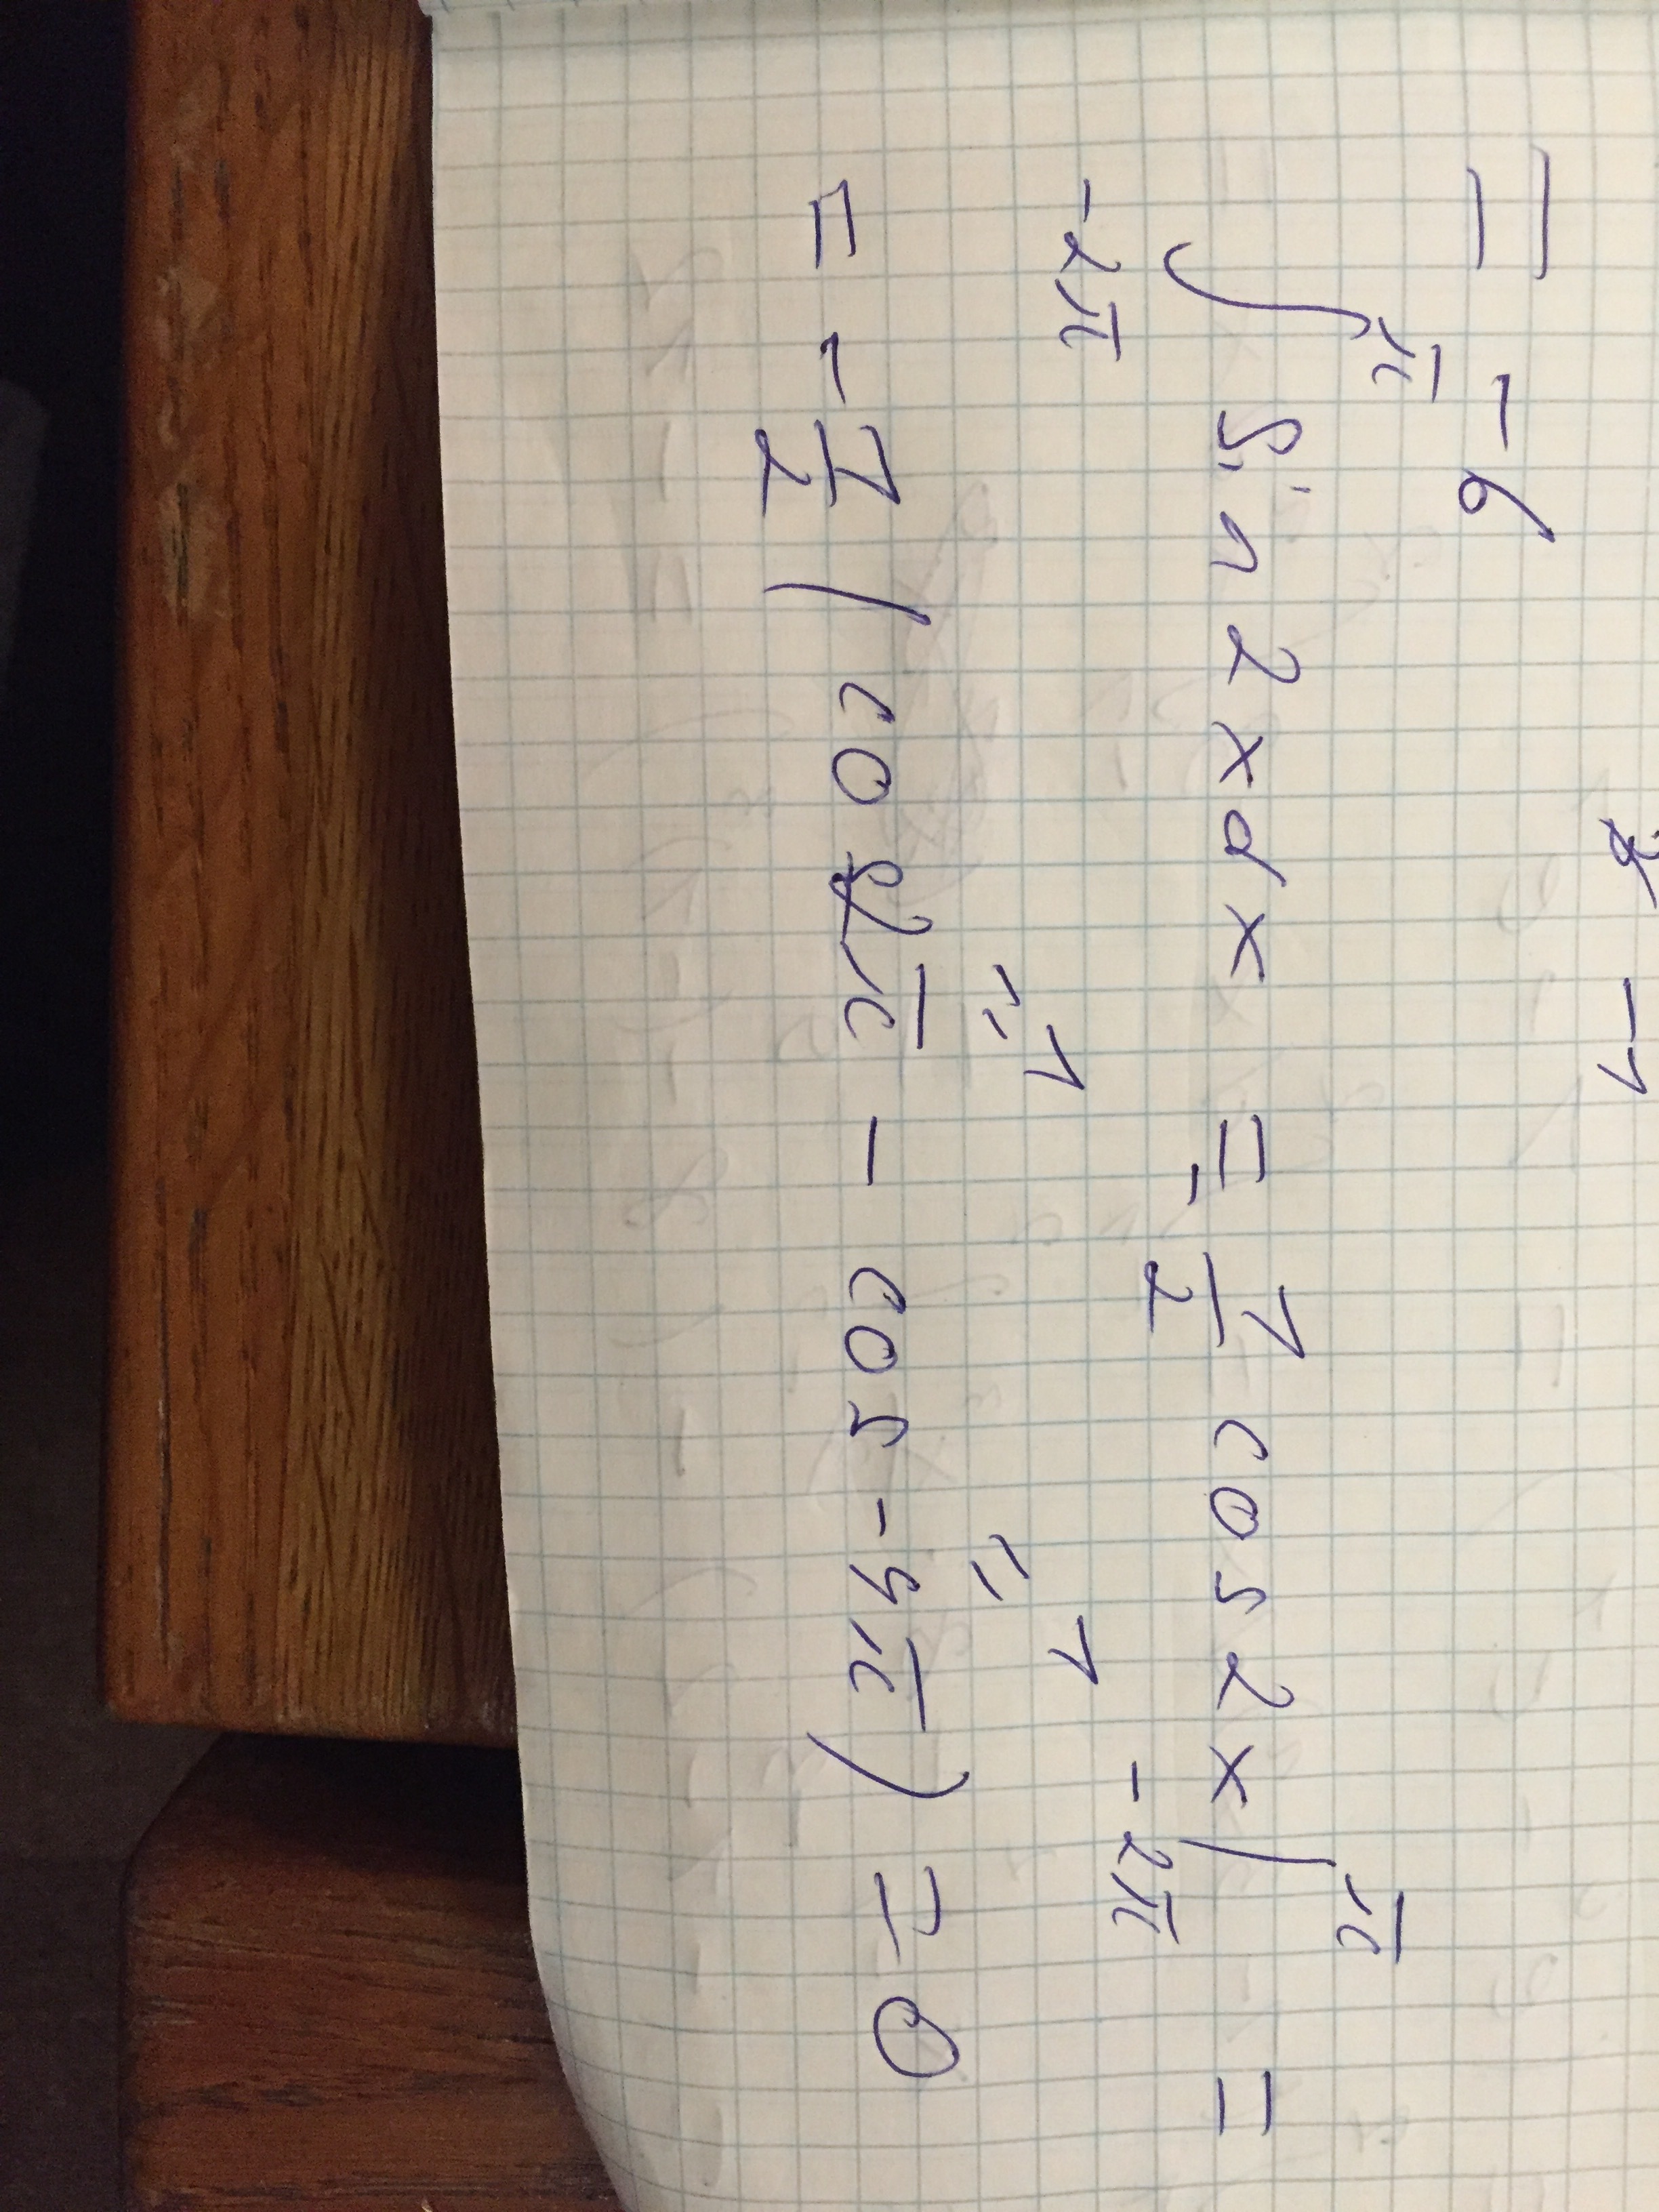 = -6
∫_{-2π}^{π} sin 2x dx = -1/2 cos 2x |_{-2π}^{π} =
= -1/2 (cos 2π - cos -4π) = 0
"1 "1